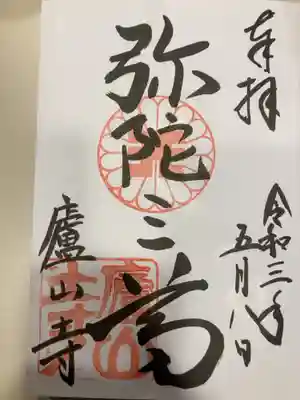 奉拝
令和三年
五月八日
弥陀三尊
廬山寺